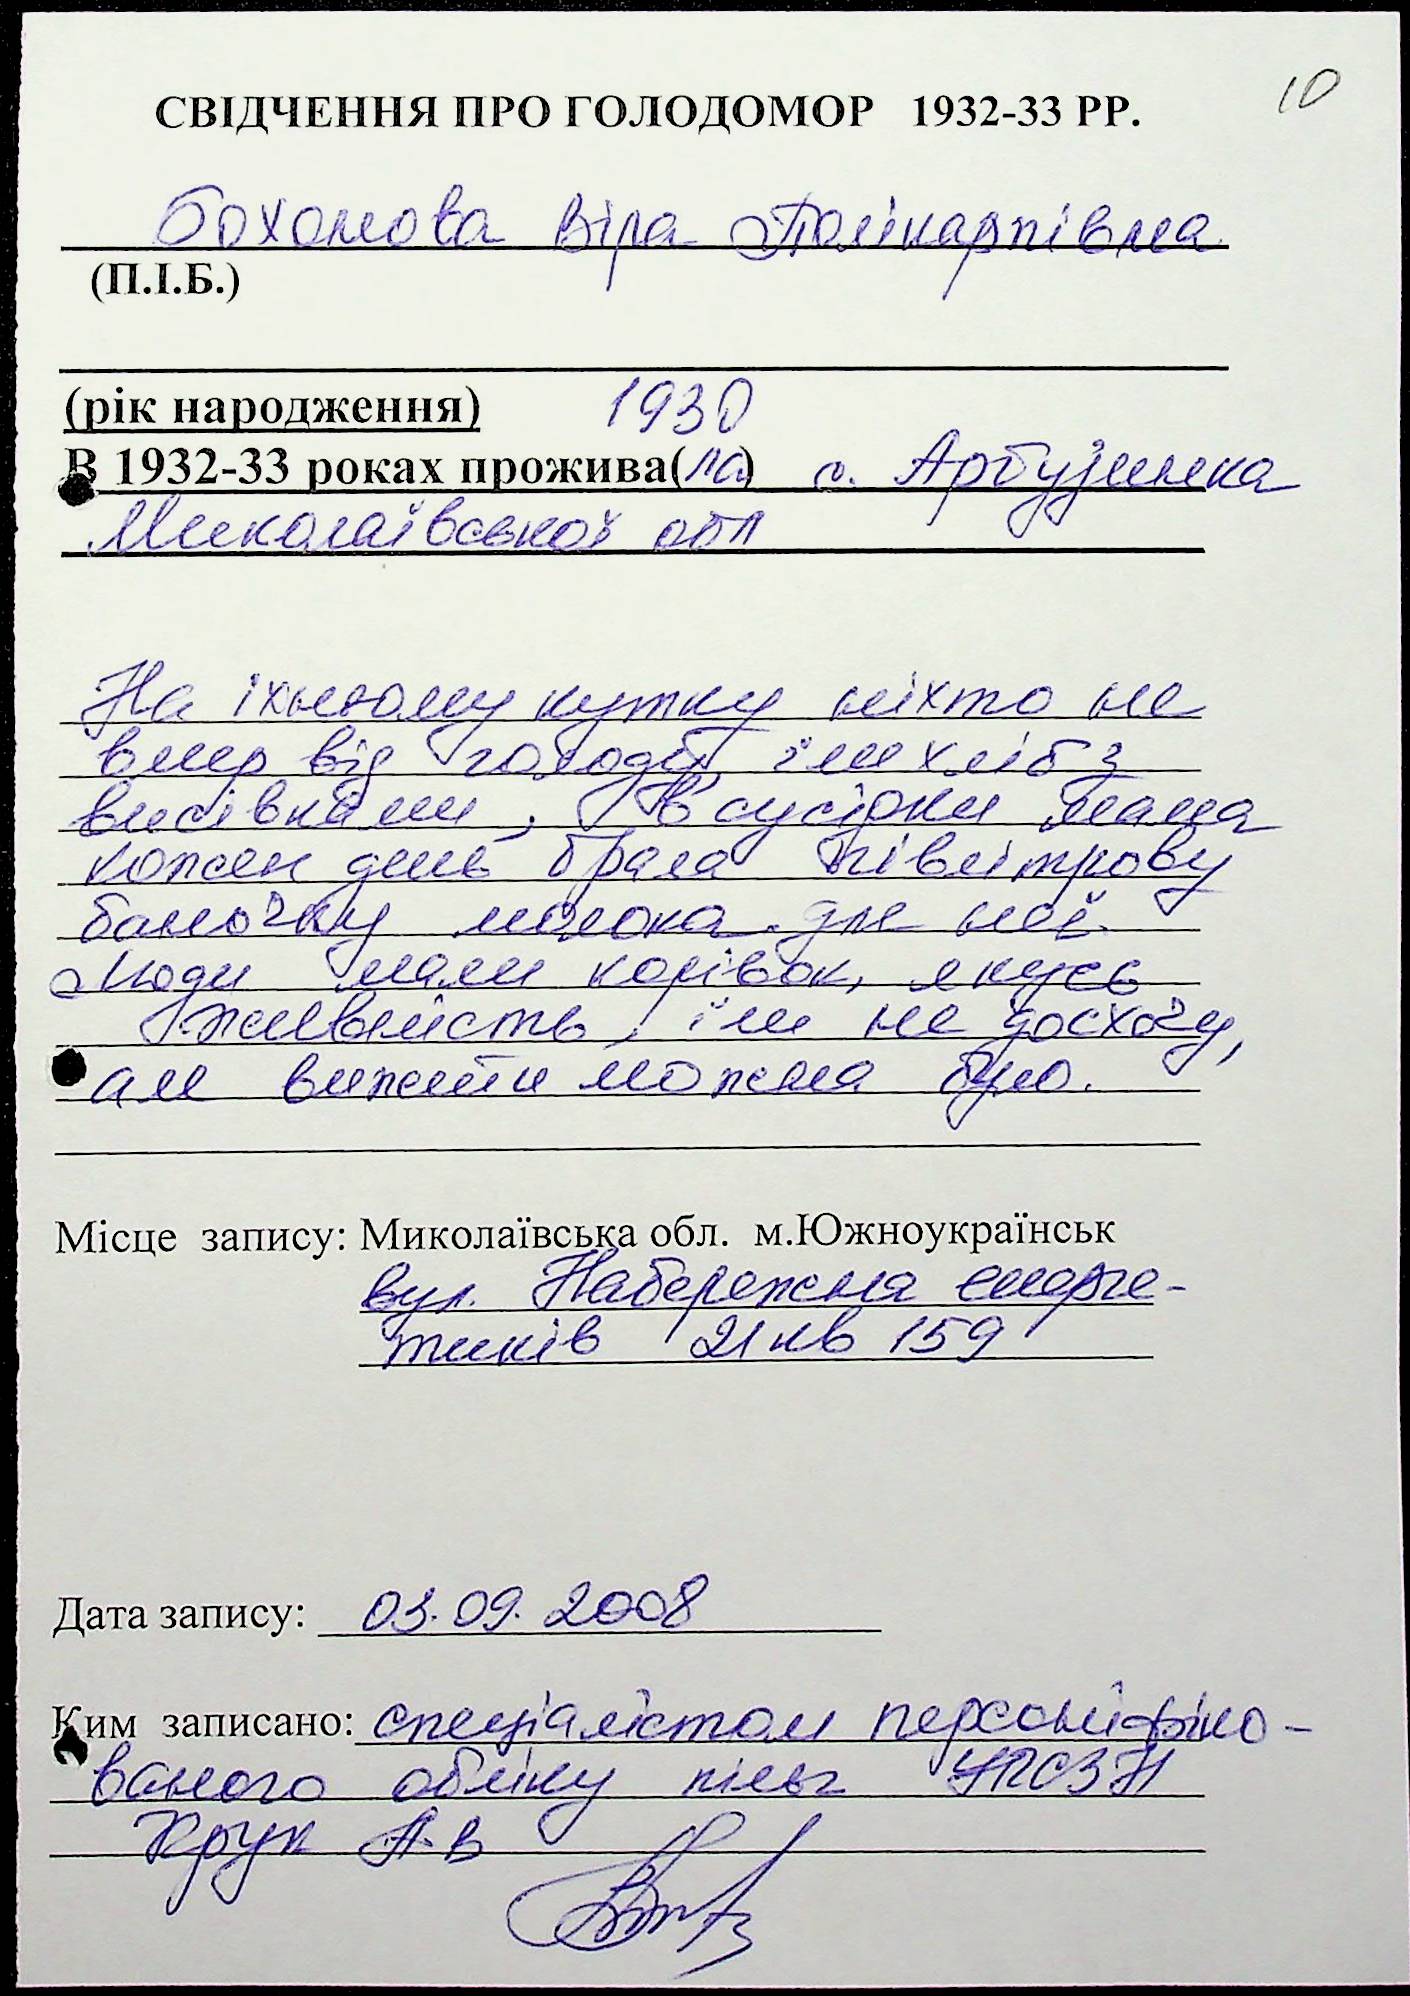 10
СВІДЧЕННЯ ПРО ГОЛОДОМОР 1932-33 РР.
Бохонова Віра Полікарпівна
(П.І.Б.)
(рік народження) 1930
В 1932-33 роках прожива(ла) с. Арбузинка
Миколаївської обл
На їхньому кутку ніхто не
вмер від голоду, їли хліб з
висівками, в сусідки мама
кожен день брала півлітрову
баночку молока для неї.
Люди мали корівок, якусь
живність, їли не досхочу,
але вижити можна було.
Місце запису: Миколаївська обл. м.Южноукраїнськ
вул. Набережна енерге-
тиків 21 кв 159
Дата запису: 03.09.2008
Ким записано: спеціалістом персоніфіко-
ваного обліку пільг УПСЗН
Крук А.В